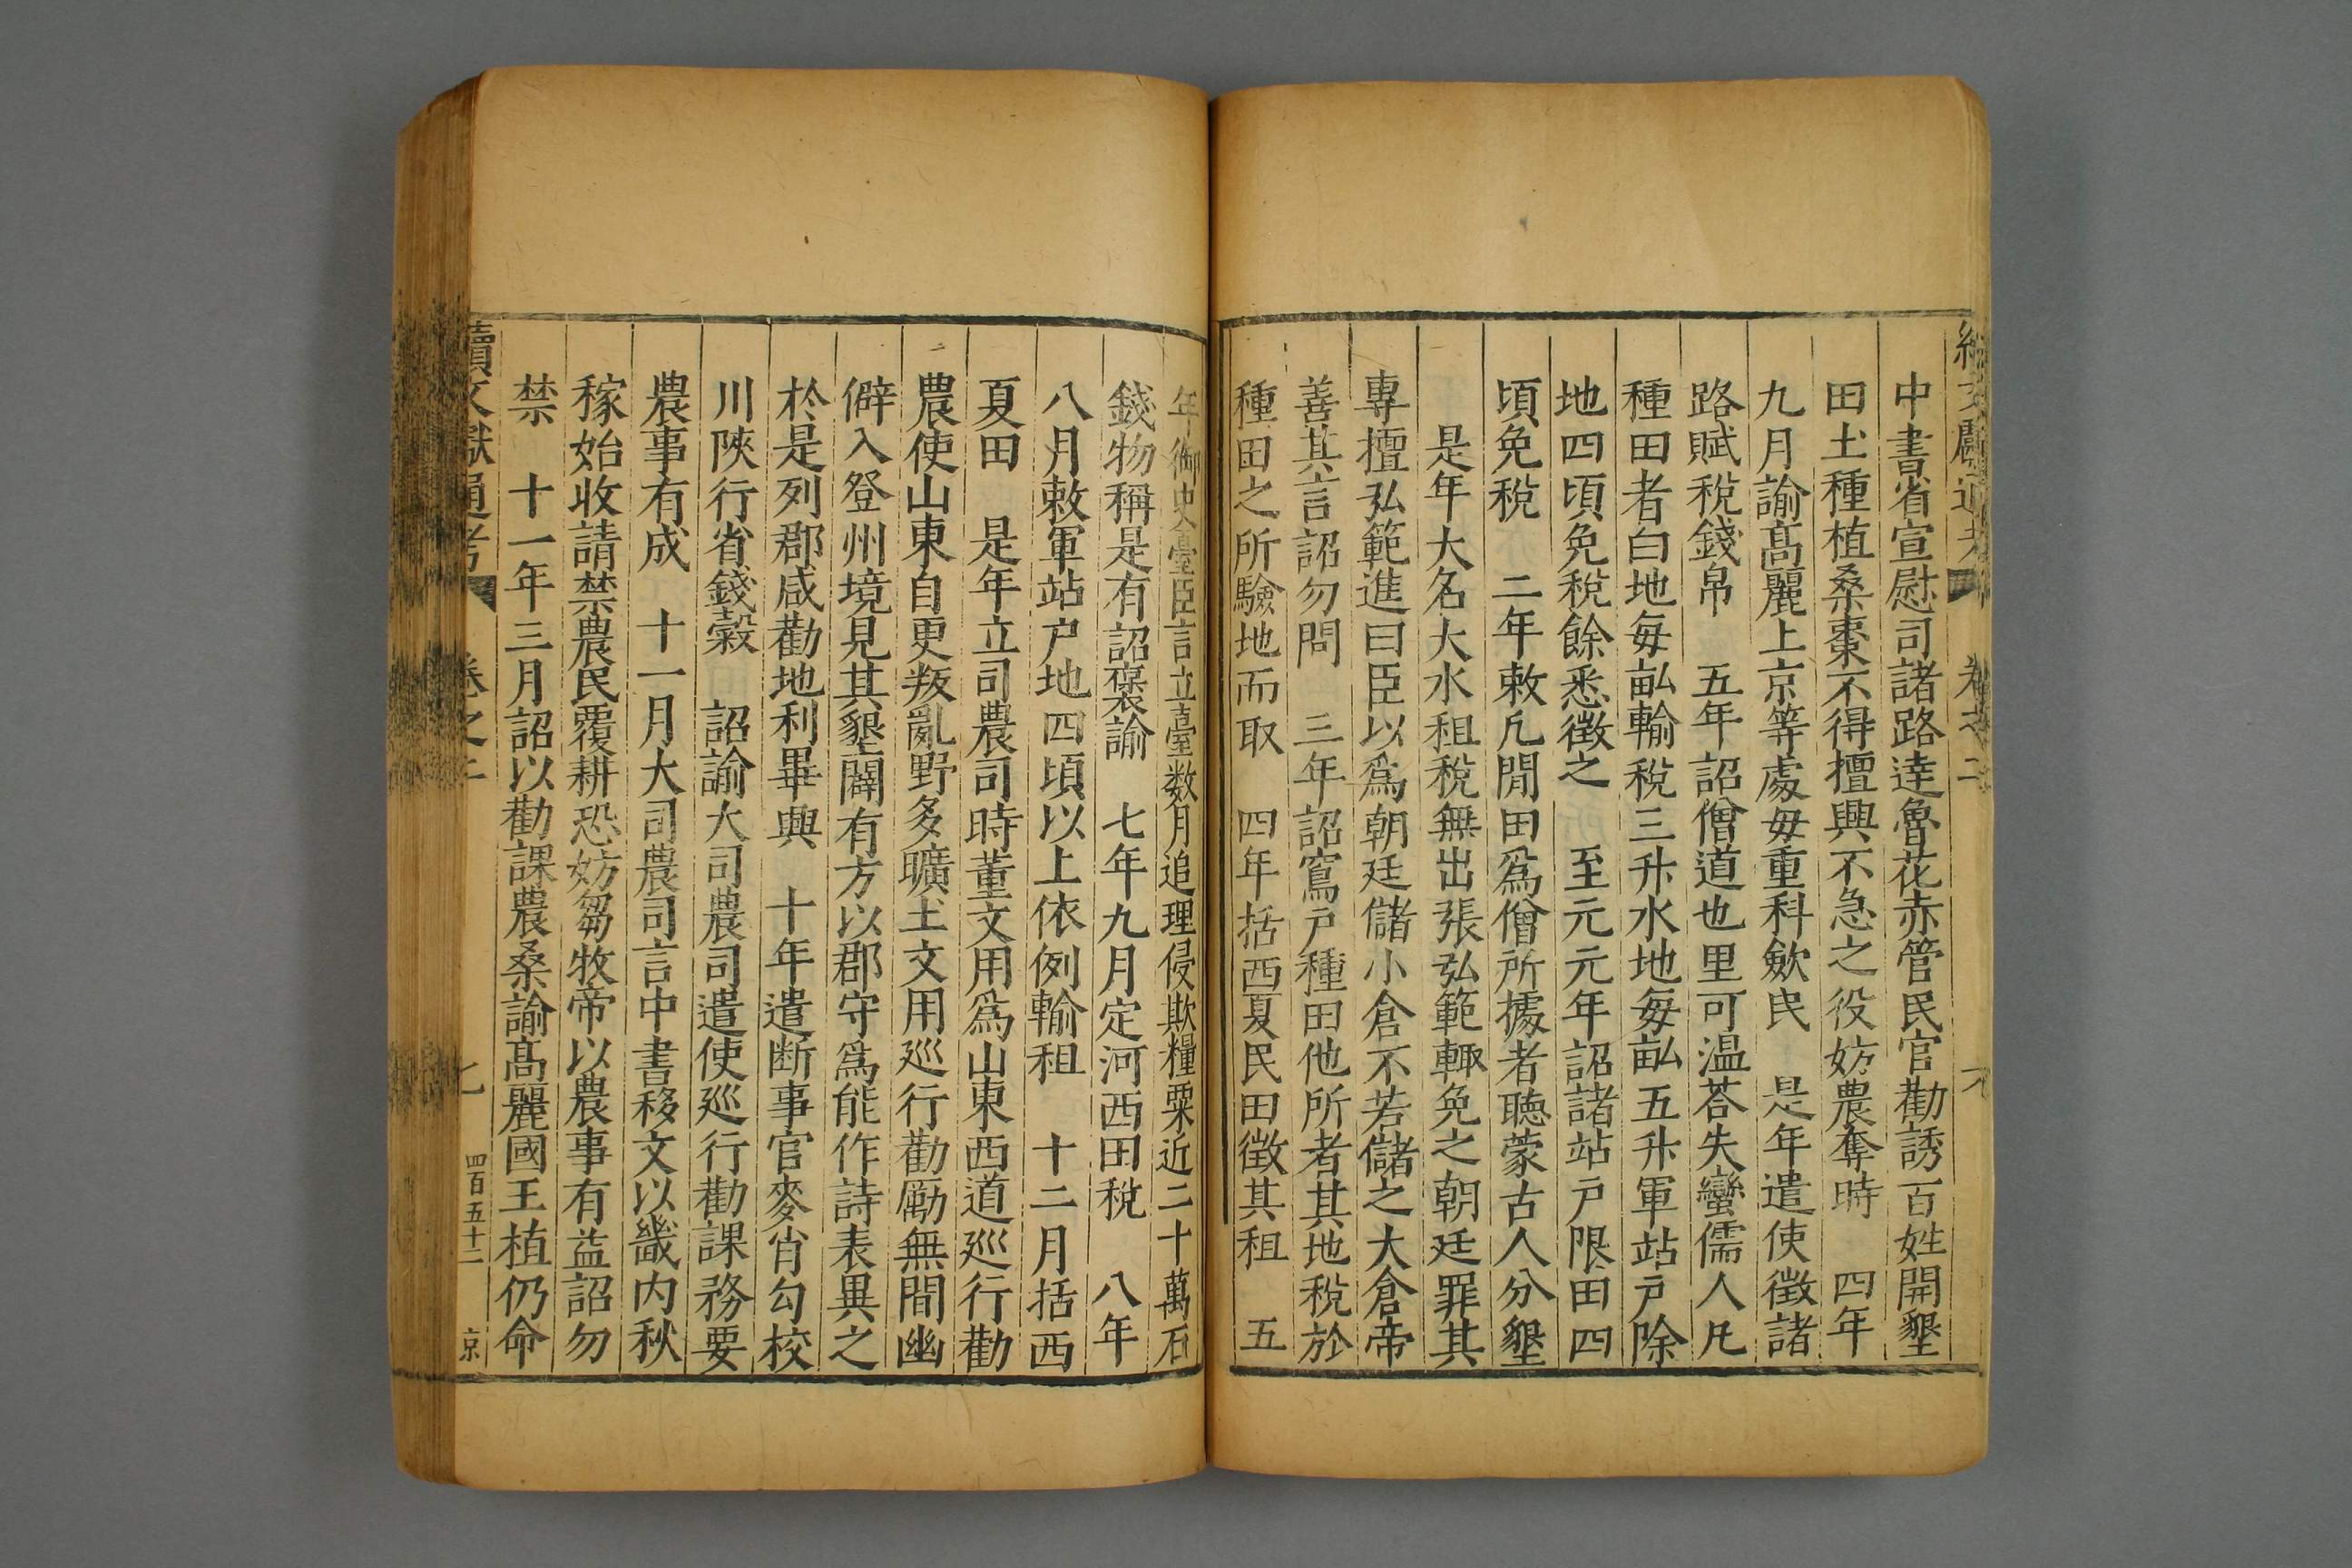 中書省宣慰司諸路達魯花赤管民官勸誘百姓開墾
田土種植桑棗不得擅興不急之役妨農奪時　四年
九月諭髙麗上京等處毋重科歛民　是年遣使徵諸
路賦稅錢帛　五年詔僧道也里可温荅失蠻儒人凡
種田者白地每畆輸稅三升水地每畆五升軍站戶除
地四頃免稅餘悉徵之　至元元年詔諸站戶限田四
頃免稅　二年敕凡閒田爲僧所據者聽蒙古人分墾
是年大名大水租稅無出張弘範輙免之朝廷罪其
專擅弘範進曰臣以爲朝廷儲小倉不若儲之大倉帝
善其言詔勿問　三年詔窎戶種田他所者其地稅於
種田之所驗地而取　四年括西夏民田徵其租　五
年御史臺臣言立臺数月追理侵欺糧粟近二十萬石
錢物稱是有詔褒諭　七年九月定河西田稅　八年
八月敕軍站户地四頃以上依例輸租　十二月括西
夏田　是年立司農司時董文用爲山東西道廵行勸
農使山東自更叛亂野多曠土文用廵行勸勵無間幽
僻入登州境見其墾闢有方以郡守爲能作詩表異之
於是列郡咸勸地利畢興　十年遣断事官麥肖勾校
川陜行省錢穀　詔諭大司農司遣使廵行勸課務要
農事有成　十一月大司農司言中書移文以畿内秋
稼始收請禁農民覆耕恐妨芻牧帝以農事有益詔勿
禁　十一年三月詔以勸課農桑諭髙麗國王植仍命
續文獻通考　卷之二　七　四百五十二　京